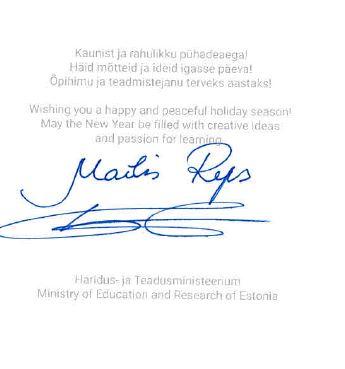 Kaunist ja rahulikku pühadeaega!
Häid mõtteid ja ideid igasse päeva!
Õpihimu ja teadmistejanu terveks aastaks!
Wishing you a happy and peaceful holiday season!
May the New Year be filled with creative ideas
and passion for learning
Mailis Reps
Haridus- ja Teadusministeerium
Ministry of Education and Research of Estonia